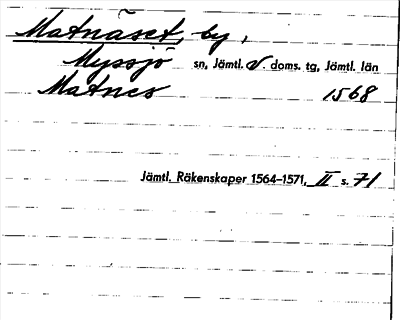 Matnäset, by,
Myssjö sn, Jämtl. v. doms. tg, Jämtl. län
Matnes 1568
Jämtl. Räkenskaper 1564–1571, II s. 71